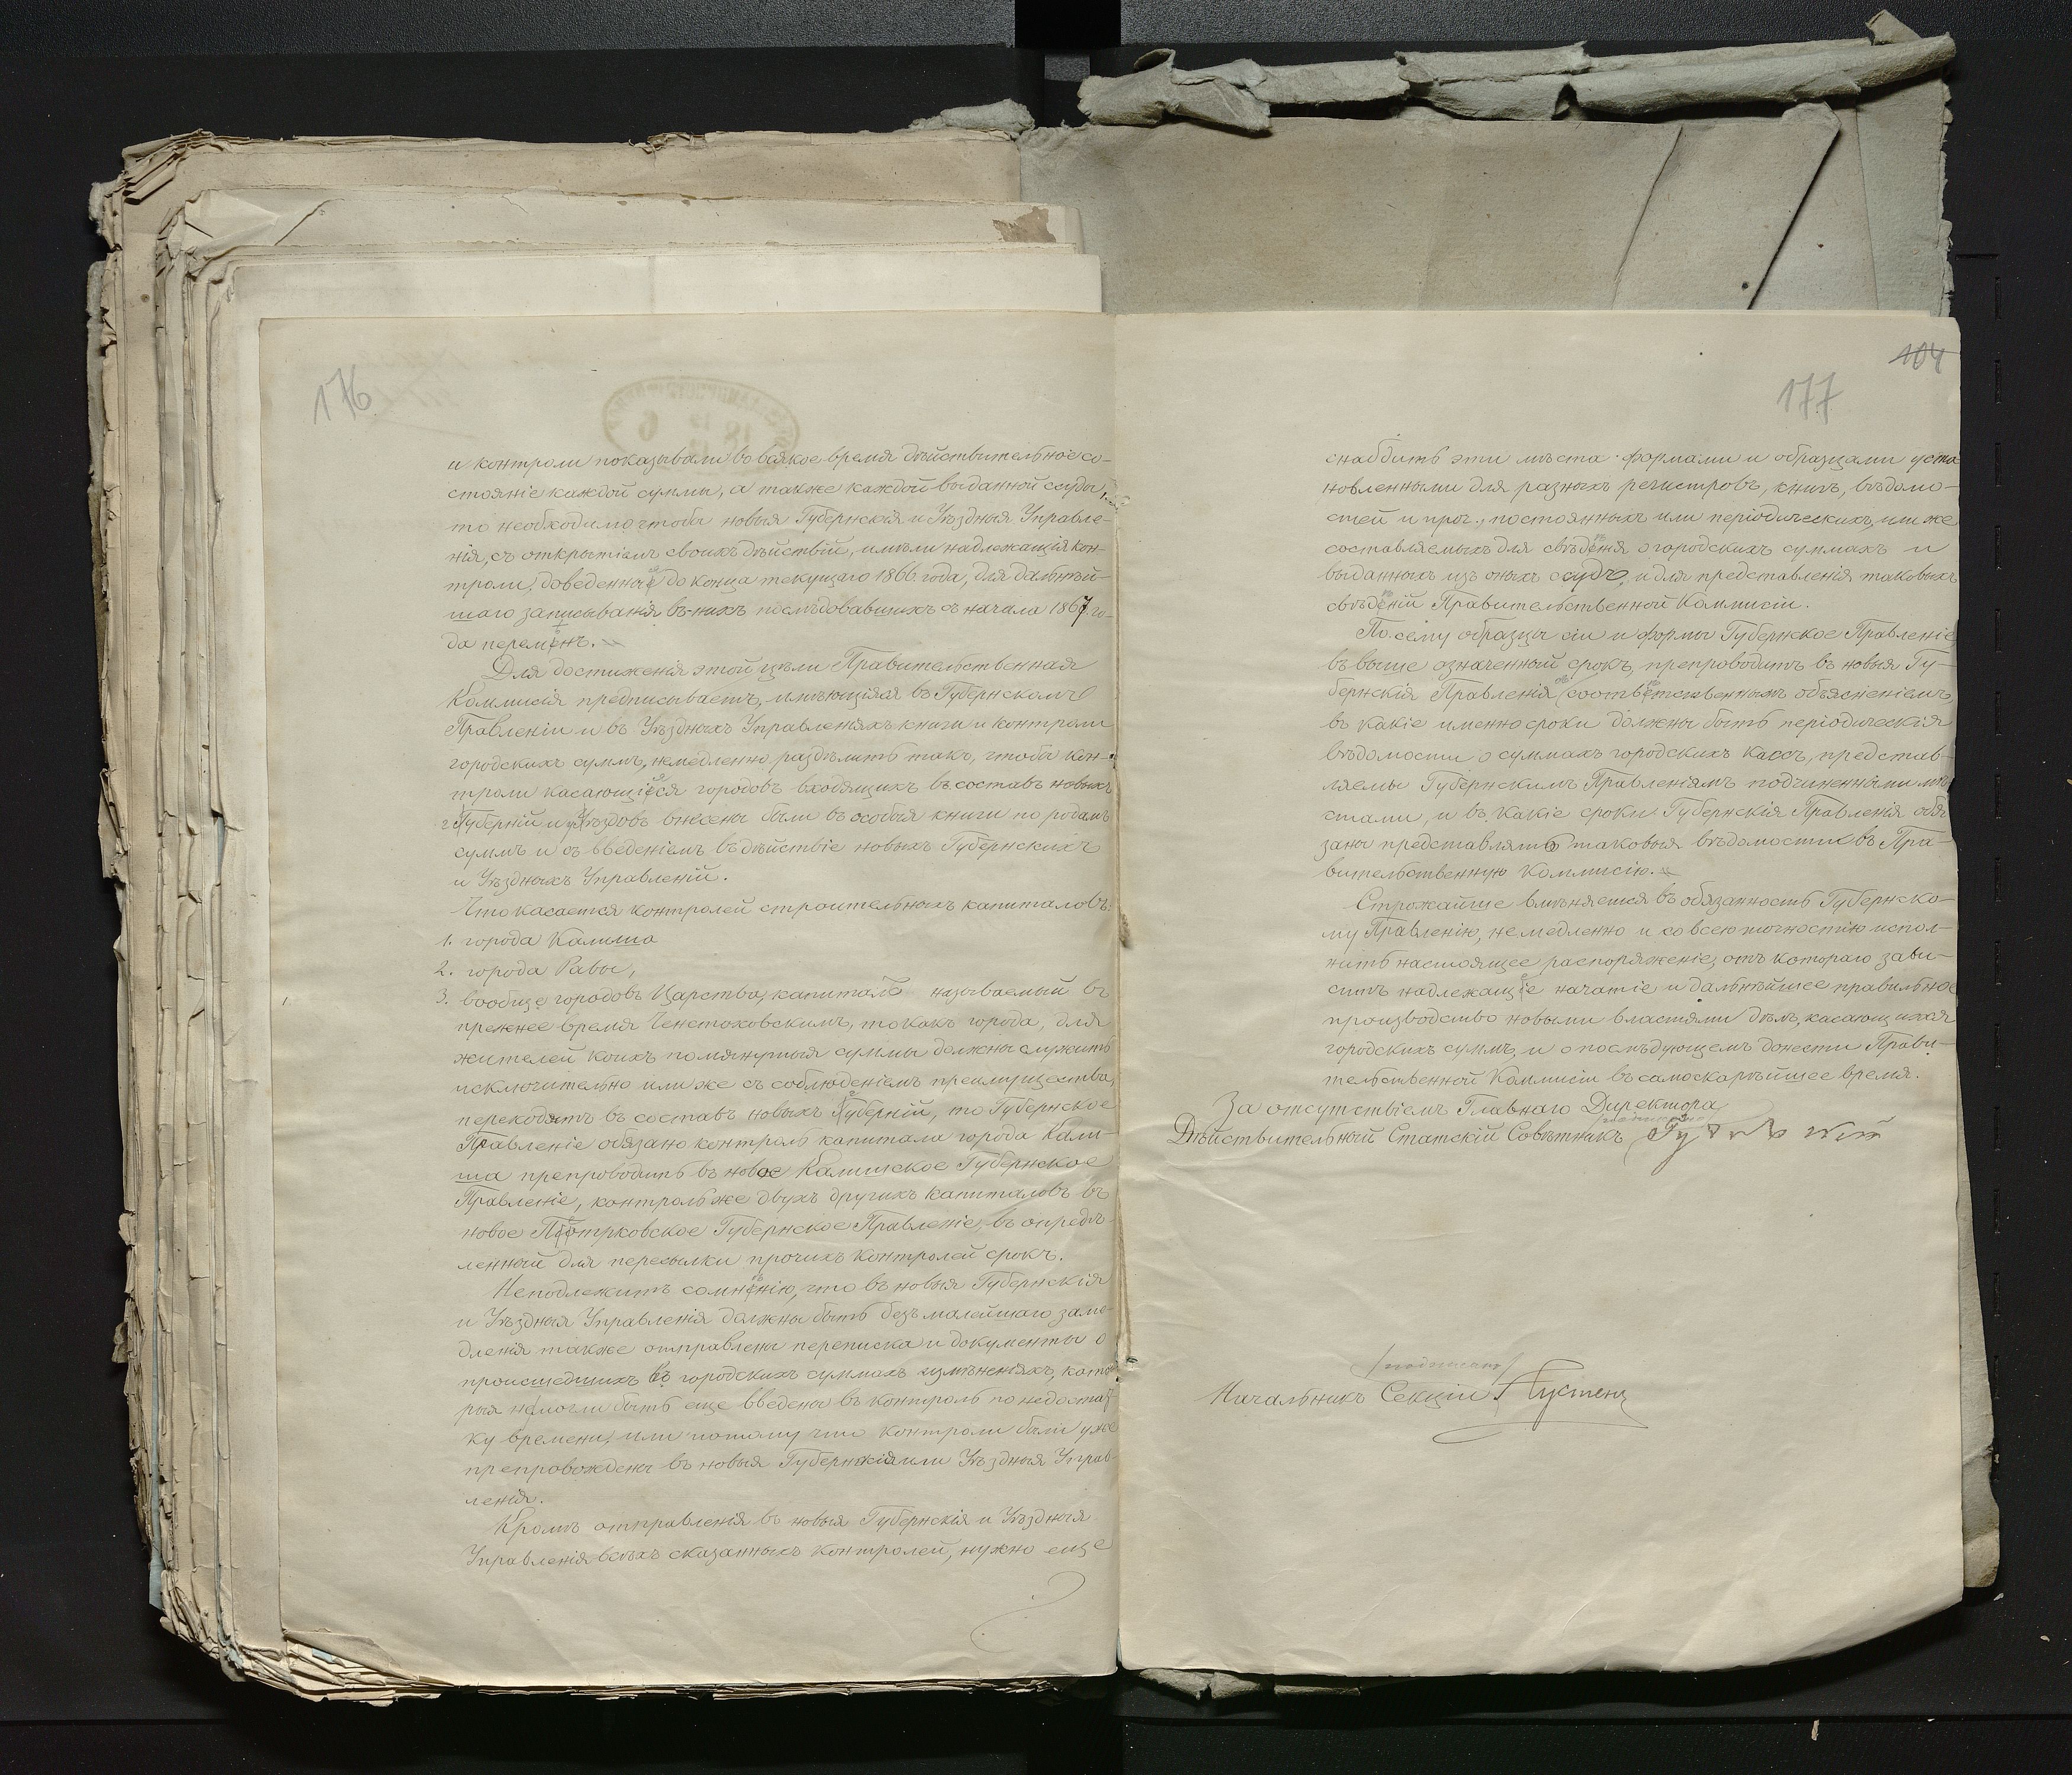 176
и контроли показывали во всякое время дѣйствительное со-
стоянiе каждой суммы, а также каждой выданной ссуды,
то необходимо чтобы новыя Губернскiя и Уѣздныя Управле-
нiя, съ открытiемъ своихъ дѣйствiй, имѣли надлежащiя кон-
троли, доведенные до конца текущаго 1866 года, для дальнѣй-
шаго записыванiя въ нихъ послѣдовавшихъ съ начала 1867 го-
да перемѣнъ.
Для достиженiя этой цѣли Правительственная
Коммисiя предписываетъ, имѣющiяся въ Губернскомъ
Правленiи и въ Уѣздныхъ Управленiяхъ книги и контроли
городскихъ суммъ, немедленно раздѣлить такъ, чтобы кон-
троли касающiеся городовъ входящихъ въ составъ новыхъ
Губернiй и уѣздовъ внесены были въ особыя книги по родамъ
суммъ и съ введенiемъ въ дѣйствiе новыхъ Губернскихъ
и Уѣздныхъ Управленiй.
Что касается контролей строительныхъ капиталовъ:
1. города Калиша
2. города Равы,
3. вообще городовъ Царства, капиталъ называемый въ
прежнее время Ченстоховскимъ, то какъ города, для
жителей коихъ помянутыя суммы должны служить
исключительно или же съ соблюденiемъ преимущества,
переходятъ въ составъ новыхъ Губернiй, то Губернское
Правленiе обязано контроль капитала города Кали-
ша препроводить въ новое Калишское Губернское
Правленiе, контроль же двухъ другихъ капиталовъ въ
новое Пiотрковское Губернское Правленiе, въ опредѣ-
ленный для пересылки прочихъ контролей срокъ.
Неподлежитъ сомнѣнiю, что въ новыя Губернскiя
и Уѣздныя Управленiя должны быть безъ малейшаго заме-
дленiя также отправлены переписка и документы о
происшедшихъ въ городскихъ суммахъ измѣненiяхъ, кото-
рыя немогли быть еще введены въ контроль по недостат-
ку времени, или потому что контроли были уже
препровождены въ новыя Губернскiя или Уѣздныя Управ-
ленiя.
Кромѣ отправленiя въ новыя Губернскiя и Уѣздныя
Управленiя всѣхъ сказанныхъ контролей, нужно еще
104
177
снабдить эти мѣста формами и образцами уста-
новленными для разныхъ регистровъ, книгъ, вѣдомо-
стей и проч., постоянныхъ или перiодическихъ, или же
составляемыхъ для свѣдѣнiя о городскихъ суммахъ и
выданныхъ изъ оныхъ ссудъ, и для представленiя таковыхъ
свѣдѣнiй Правительственной Коммисiи.
По сему образцы сiи и формы Губернское Правленiе
въ выше означенный срокъ, препроводитъ въ новыя Гу-
бернскiя Правленiя съ соотвѣтственнымъ объясненiемъ,
въ какiе именно сроки должны быть перiодическiя
вѣдомости о суммахъ городскихъ кассъ, представ-
ляемы Губернскимъ Правленiямъ подчиненными мѣ-
стами, и въ какiе сроки Губернскiя Правленiя обя-
заны представлять таковыя вѣдомости въ Пра-
вительственную Коммисiю.
Строжайше вмѣняется въ обязанность Губернско-
му Правленiю, немедленно и со всею точностiю испол-
нить настоящее распоряженiе, отъ котораго зави-
ситъ надлежащiе начатiе и дальнѣйшее правильное
производство новыми властями дѣлъ, касающихся
городскихъ суммъ, и о послѣдующемъ донести Прави-
тельственной Коммисiи въ самоскорѣйшее время.
За отсутствiемъ Главнаго Директора
Дѣйствительный Статскiй Совѣтникъ
/подписано/
Начальникъ Секцiи